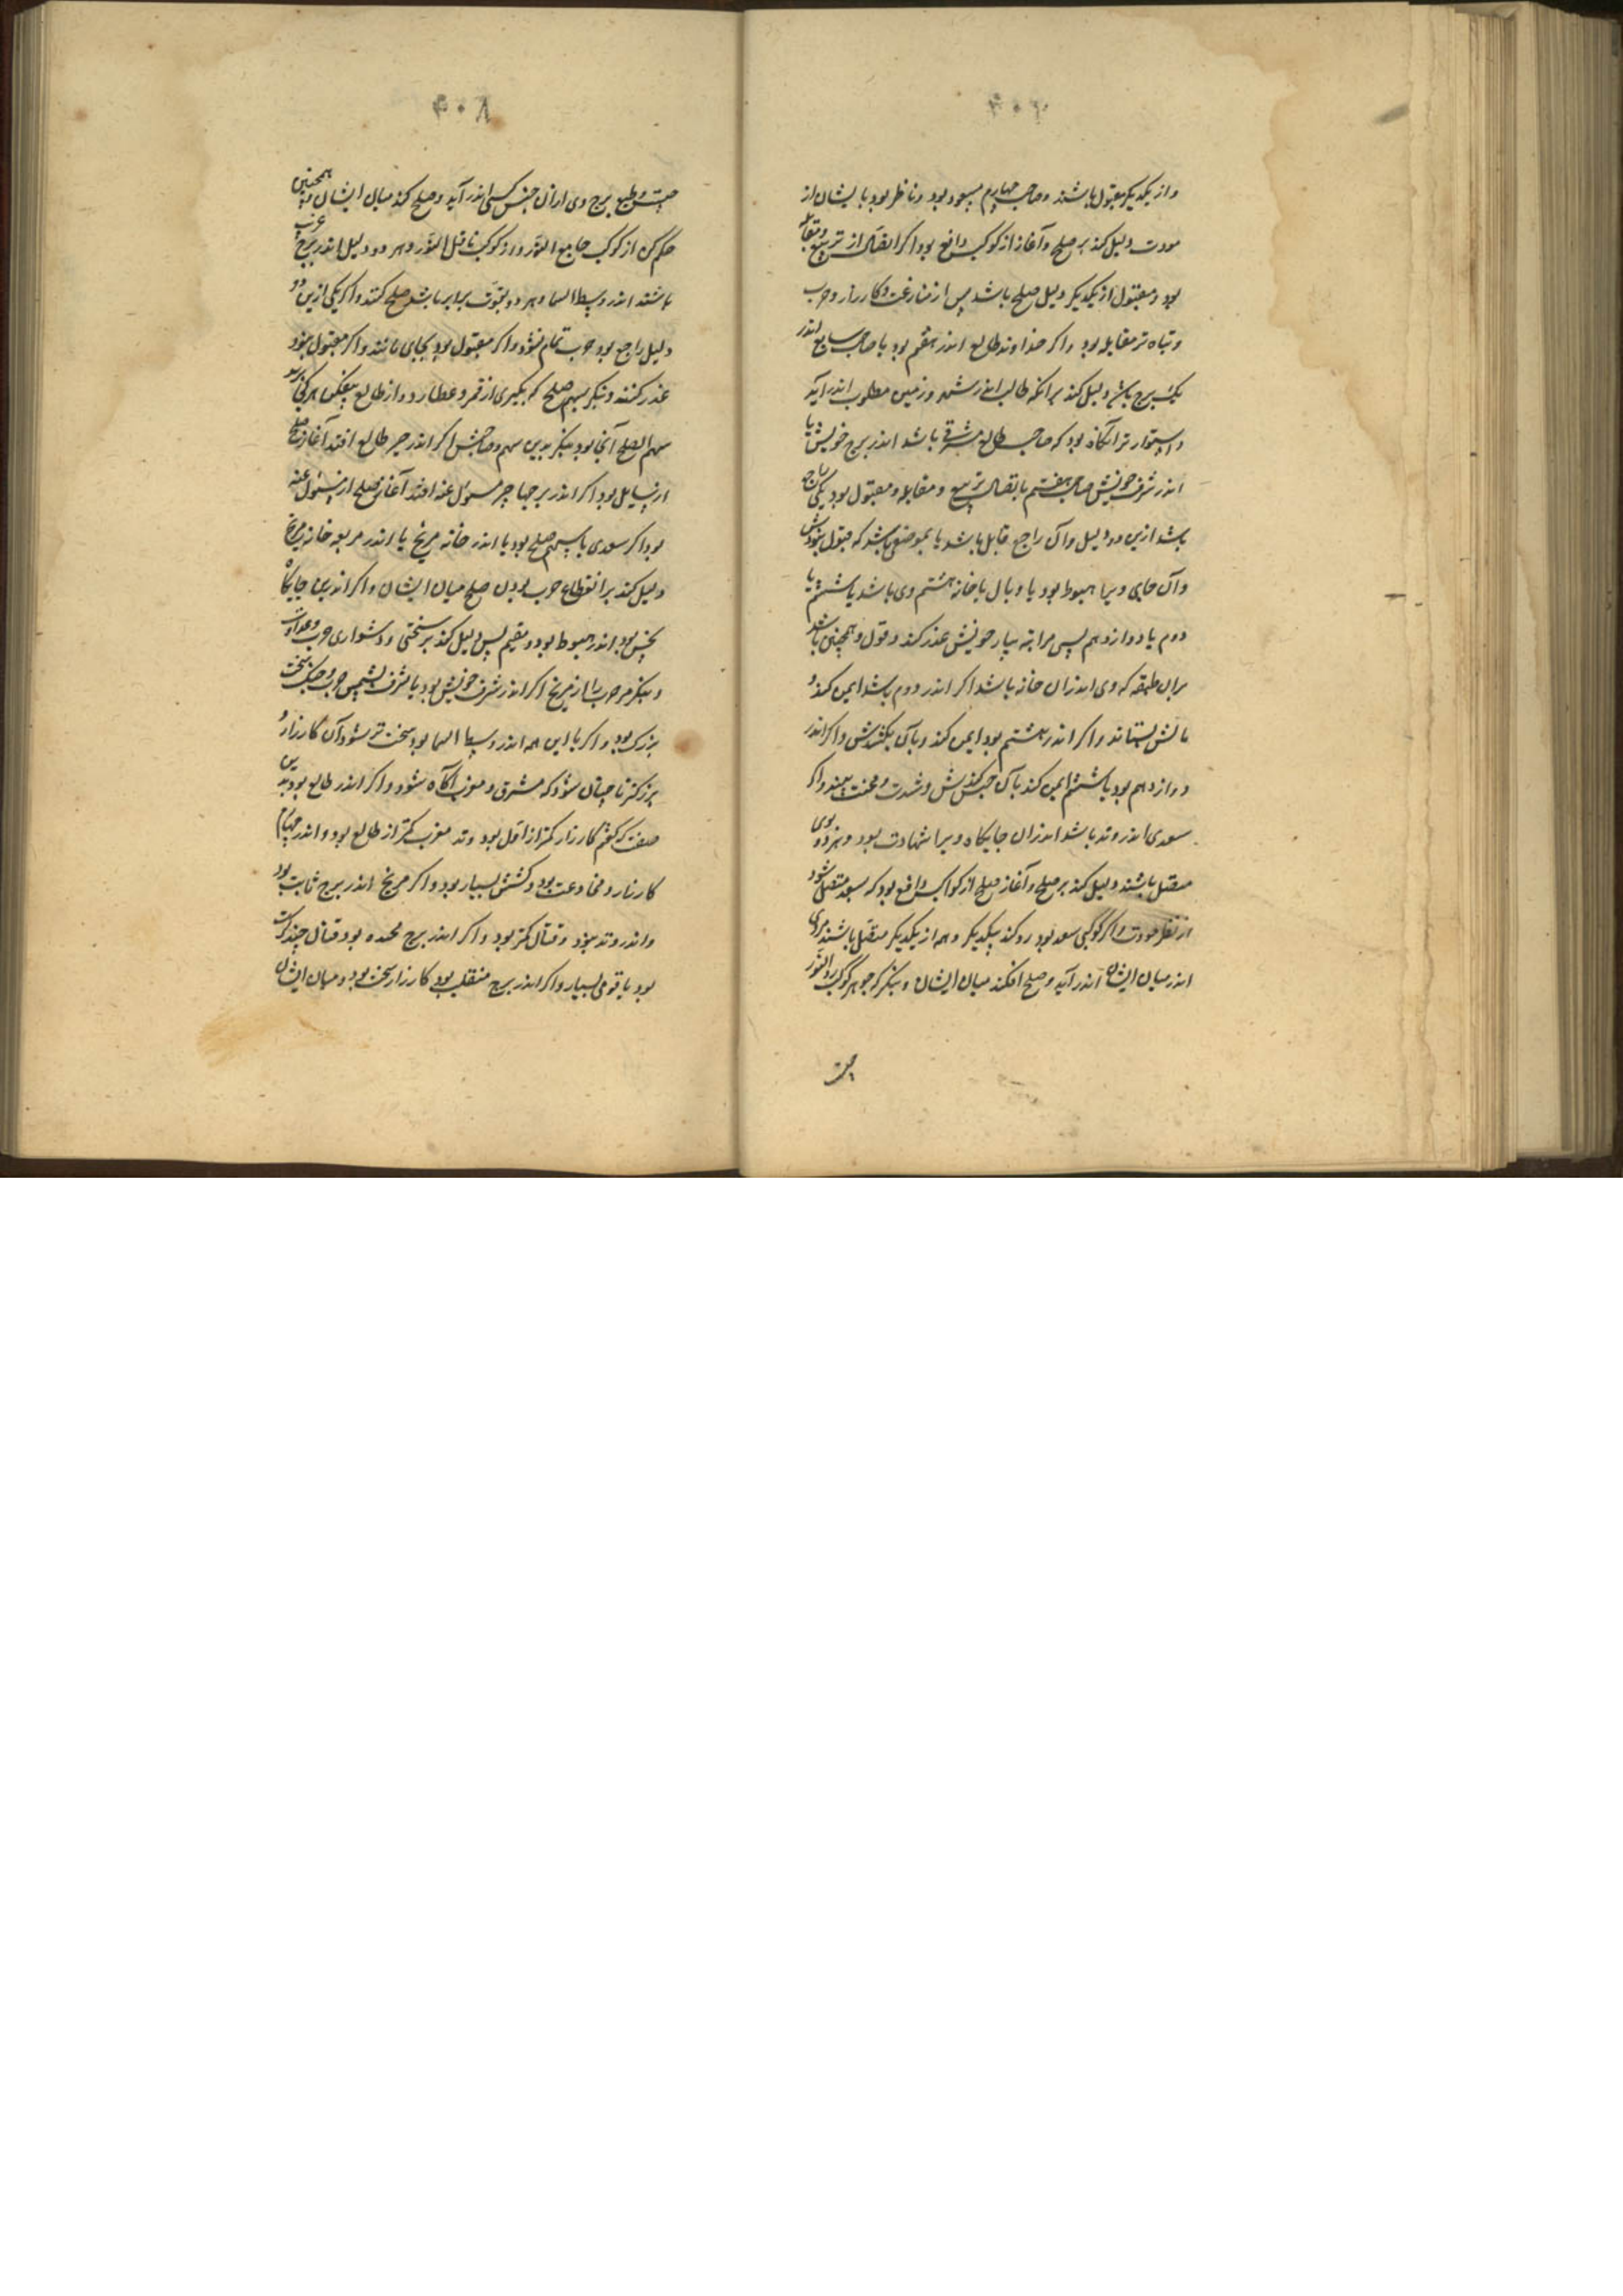 واز یکدیکر مقبول باشند وصاحب چهارم مسعود بود وناظر بود بایشان از
مودت دلیل کند بر صلح وآغاز از کوکب دافع بود اکر اتصال از تربیع ومقابله
بود ومقبول از یکدیکر دلیل صلح باشد پس از منازعت وکارزار وحرب
وتباه تر مقابله بود واکر خداوند طالع اندر هفتم بود یا صاحب سابع اندر
یک برج باشد دلیل کند برانکه طالب اندر شهر وزمین مطلوب اندر آید
واستوار تر آنکاه بود که صاحب طالع مشرقی باشد اندر برج خویش ویا
اندر شرف خویش صاحب هفتم باتصال تربیع ومقابله ومقبول بود یکی راجع
باشد ازین دو دلیل وآن راجع قابل باشد یا بموضعی باشد که قبول نبودش
وآن جای ویرا هبوط بود یا وبال یا خانه هشتم وی باشد یا ششم یا
دوم یا دوازدهم پس مرانه بیار خویش غدر کند وقول وهمچنین باشد
بران طبقه که وی اندران خانه باشد اکر اندر دوم باشد ایمن کند و
مالش بستاند واکر اندر هشتم بود ایمن کند وبآن بکشدش واکر اندر
دوازدهم بود یا ششم ایمن کند بآن حبس کندش وشدت ومحنت بیند واکر
سعدی اندر وتد باشد اندران جایکاه ویرا شهادت بود وهر دو بوی
متصل باشند دلیل کند بر صلح وآغاز صلح از کواکب دافع بود که بسعد متصل شود
از نظر مودت واکر کوکبی سعد بود رد کند بیکدیکر وهم از یکدیکر متصل باشند مردی
اندر میان ایشان اندر آید وصلح افکند میان ایشان وبنکر که جوهر کوکب رد النور
چیست
چیست وطبع برج وی ازان جنس کسی اندر آید وصلح کند میان ایشان وهمچنین
حکم کن از کوکب جامع النور واز کوکب ناقل النور وهر دو دلیل اندر برج غرب
باشند اندر وسط السما وهر دو بقوت برابر باشد صلح کنند واکر یکی ازین دو
دلیل راجع بود حرب تمام نشود واکر مقبول بود بجای مانند واکر مقبول نبود
غدر کنند وبنکر بسهم صلح که بکیری از قمر وعطارد واز طالع بیفکن هر کجا برسد
سهم الصلح آنجا بود بنکر بدین سهم وصاحبش اکر اندر حیز طالع افتد آغاز صلح
از سایل بود اکر اندر حیز مسئول عنه افتد آغاز صلح از مسئول عنه
بود اکر سعدی با سهم صلح بود یا اندر خانه مریخ یا اندر مربعه خانه مریخ
دلیل کند بر انقطاع حرب بودن صلح میان ایشان واکر اندرین جایکاه
نحس بود اندر هبوط بود ومقیم پس دلیل کند بر سختی ودشواری حرب وعداوت
وبنکر مر حرب را از مریخ اکر اندر شرف خویش بود یا شرف شمس حرب وجنک سخت
بزرک بود واکر با این همه اندر وسط السما بود سخت تر شود آن کارزار و
بزرکتر تا چنان شود که مشرق ومغرب آکاه شود واکر اندر طالع بود بدین
صفت که کفتم کارزار کمتر از اول بود وتد مغرب کمتر از طالع بود واندر چهارم
کارزار ومخادعت بود وکشش بسیار بود واکر مریخ اندر برج ثابت بود
واندر وتد نبود وقتال کمتر بود واکر اندر برج مجسده بود قتال چند کرت
بود با قومی بسیار واکر اندر برج منقلب بود کارزار سخت بود ومیان ایشان